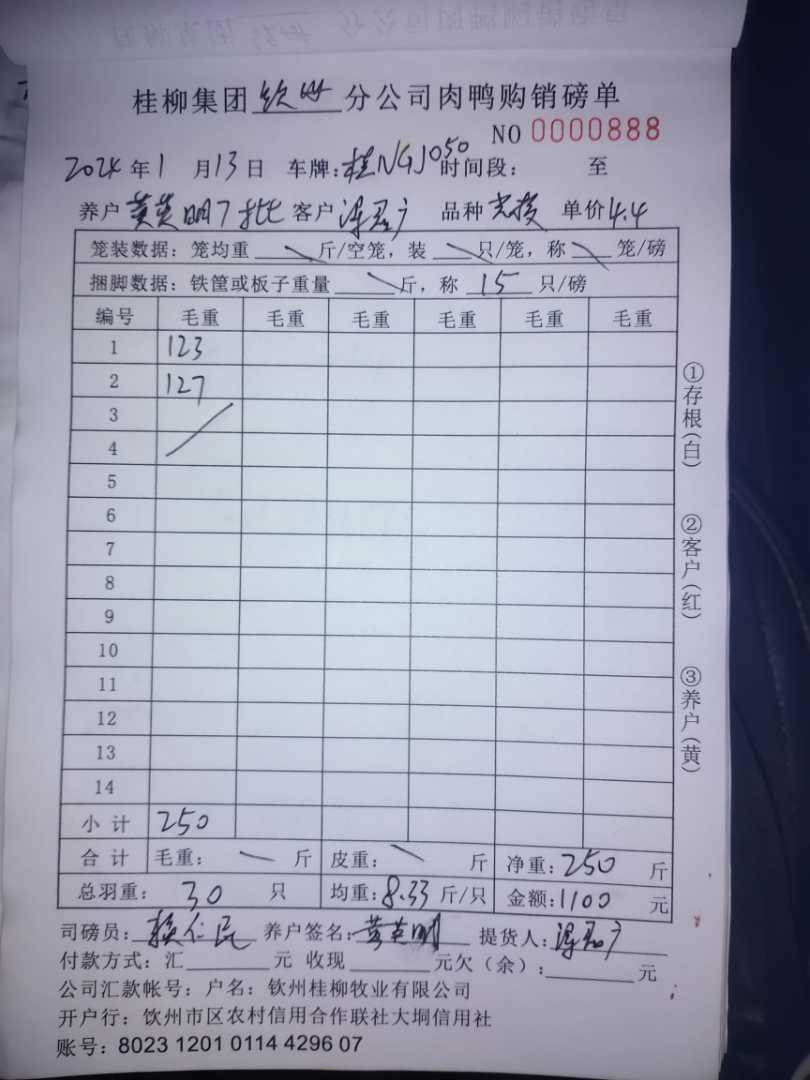 桂柳集团钦州分公司肉鸭购销磅单
NO 0000888
2024年1月13日 车牌:桂NGJ050 时间段: 至
养户 黄英明7批 客户 品种 单价4.4
笼装数据: 笼均重 斤/空笼, 装 只/笼, 称 笼/磅
捆脚数据: 铁筐或板子重量 斤, 称 15 只/磅
编号 毛重 毛重 毛重 毛重 毛重 毛重
1 123
2 127
3
4
5
6
7
8
9
10
11
12
13
14
小计 250
合计 毛重: 斤 皮重: 斤 净重: 250 斤
总羽重: 30 只 均重: 8.33 斤/只 金额: 1100 元
司磅员: 养户签名: 黄英明 提货人:
付款方式: 汇 元 收现 元欠(余): 元
公司汇款帐号: 户名: 钦州桂柳牧业有限公司
开户行: 饮州市区农村信用合作联社大垌信用社
账号: 8023 1201 0114 4296 07
①存根(白)
②客户(红)
③养户(黄)